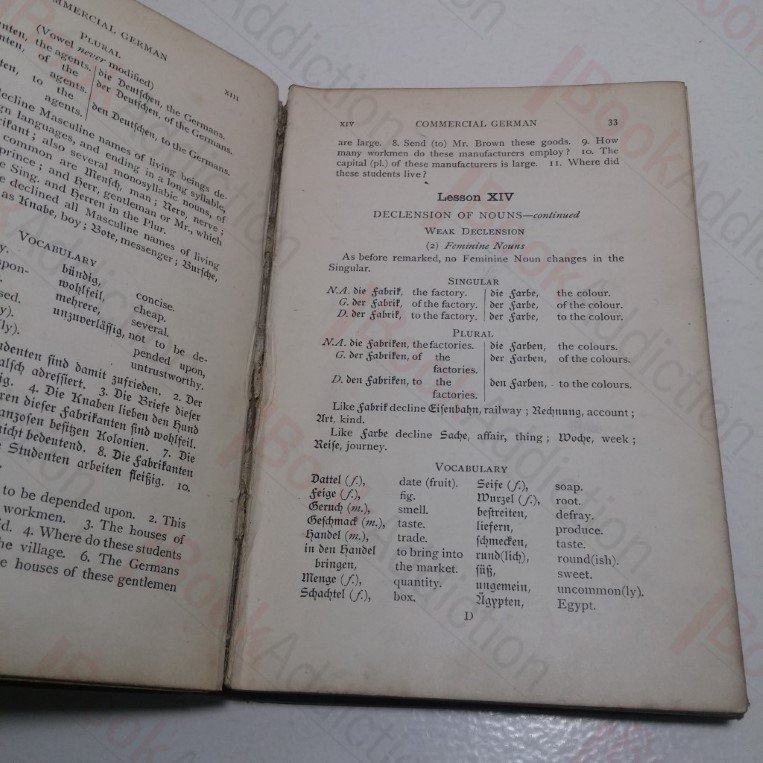 COMMERCIAL GERMAN
XIII
PLURAL
(Vowel never modified)
the agents. die Deutschen, the Germans.
of the agents. der Deutschen, of the Germans.
to the agents. den Deutschen, to the Germans.
decline Masculine names of living beings de-
languages, and ending in a long syllable,
also several monosyllabic nouns, of
common are Mensch, man; Nerv, nerve;
prince; and Herr, gentleman or Mr., which
Sing. and Herren in the Plur.
declined all Masculine names of living
as Knabe, boy; Bote, messenger; Bursche,
VOCABULARY
bündig, concise.
wohlfeil, cheap.
mehrere, several.
unzuverlässig, not to be de-
pended upon,
untrustworthy.
sind damit zufrieden. 2. Der
falsch adressiert. 3. Die Briefe dieser
4. Die Knaben lieben den Hund
dieser Fabrikanten sind wohlfeil.
besitzen Kolonien. 7. Die
nicht bedeutend. 8. Die Fabrikanten
Studenten arbeiten fleißig. 10.
to be depended upon. 2. This
workmen. 3. The houses of
4. Where do these students
the village. 6. The Germans
houses of these gentlemen
XIV COMMERCIAL GERMAN 33
are large. 8. Send (to) Mr. Brown these goods. 9. How
many workmen do these manufacturers employ? 10. The
capital (pl.) of these manufacturers is large. 11. Where did
these students live?
Lesson XIV
DECLENSION OF NOUNS—continued
WEAK DECLENSION
(2) Feminine Nouns
As before remarked, no Feminine Noun changes in the
Singular.
SINGULAR
N.A. die Fabrik, the factory. die Farbe, the colour.
G. der Fabrik, of the factory. der Farbe, of the colour.
D. der Fabrik, to the factory. der Farbe, to the colour.
PLURAL
N.A. die Fabriken, the factories. die Farben, the colours.
G. der Fabriken, of the der Farben, of the colours.
factories.
D. den Fabriken, to the den Farben, to the colours.
factories.
Like Fabrik decline Eisenbahn, railway; Rechnung, account;
Art, kind.
Like Farbe decline Sache, affair, thing; Woche, week;
Reise, journey.
VOCABULARY
Dattel (f.), date (fruit). Seife (f.), soap.
Feige (f.), fig. Wurzel (f.), root.
Geruch (m.), smell. bestreiten, defray.
Geschmack (m.), taste. liefern, produce.
Handel (m.), trade. schmecken, taste.
in den Handel to bring into rund(lich), round(ish).
bringen, the market. süß, sweet.
Menge (f.), quantity. ungemein, uncommon(ly).
Schachtel (f.), box. Ägypten, Egypt.
D